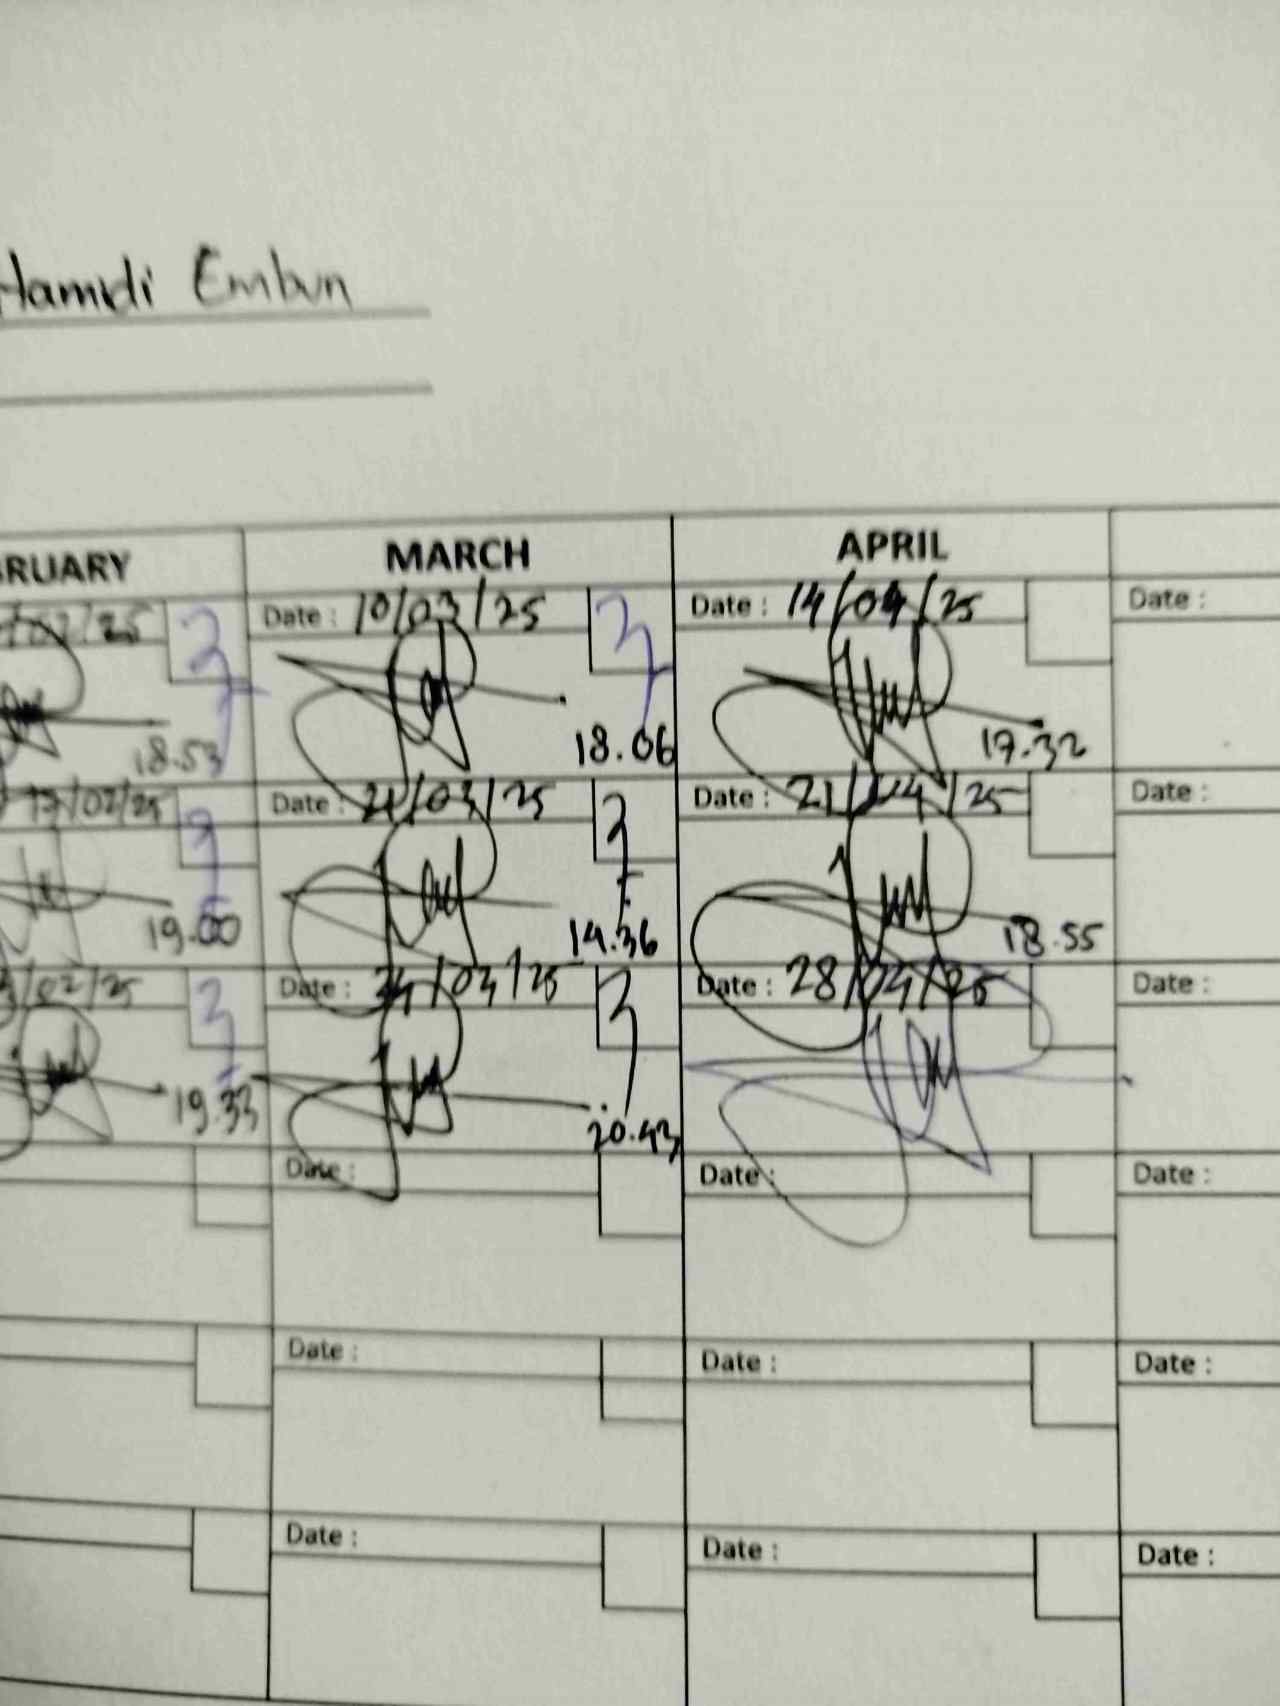 Hamdi Embun
RUARY MARCH APRIL
/02/25 3 Date : 10/03/25 3 Date : 14/04/25 Date :
18.53 18.06 17.32
17/02/25 3 Date : 21/03/25 3 Date : 21/04/25 Date :
19.00 14.36 18.55
/02/25 3 Date : 24/03/25 3 Date : 28/04/25 Date :
19.33 20.43
Date : Date : Date :
Date : Date : Date :
Date : Date : Date :